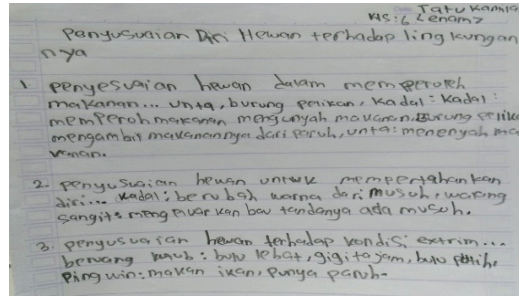 Jatu Kamila
Kls: 6 <enam>
Penyusuaian Diri Hewan terhadap lingkungan
nya
1. Penyesuaian hewan dalam memperoleh
makanan... unta, burung pelikan, kadal: kadal:
memperoh makanan mengunyah makanan, Burung pelik
mengambil makanannya dari paruh, unta: menenyah ma
kanan.
2. Penyusuaian hewan untuk mempertahankan
diri... kadal: berubah warna dari musuh, walang
sangit: mengeluarkan bau tandanya ada musuh.
3. Penyusuaian hewan terhadap kondisi extrim...
beruang kutub: bulu lebat, gigi tajam, bulu putih,
Pingwin: makan ikan, punya paruh.